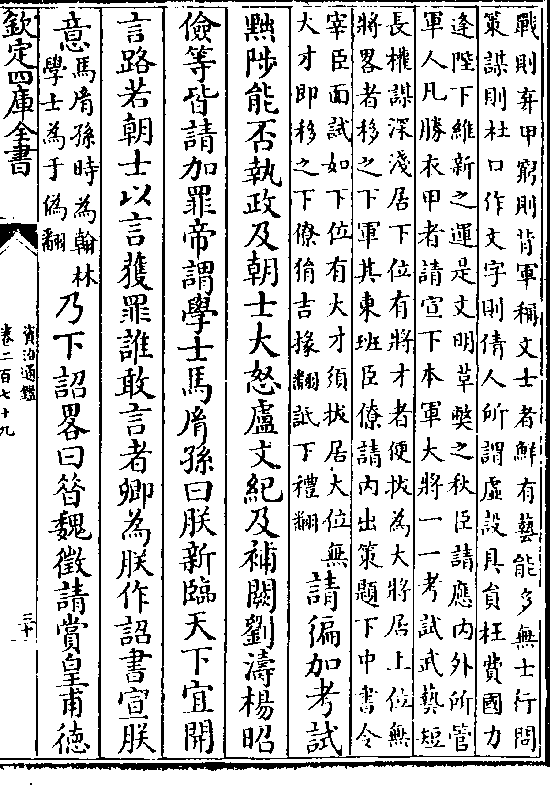 戰則棄甲窮則背軍稱文士者鮮有藝能多無士行問
策謀則杜口作文字則倩人所謂虛設具員枉費國力
逢陛下維新之運是文明革弊之秋臣請應内外所管
軍人凡勝衣甲者請宣下本軍大將一一考試武藝短
長權謀深淺居下位有將才者便拔為大將居上位無
將畧者移之下軍其東班臣僚請内出策題下中書令
宰臣面試如下位有大才須拔居大位無
大才即移之下僚狷吉掾翻詆下禮翻
請徧加考試
黜陟能否執政及朝士大怒盧文紀及補闕劉濤楊昭
儉等皆請加罪帝謂學士馬胤孫曰朕新臨天下宜開
言路若朝士以言獲罪誰敢言者卿為朕作詔書宣朕
意
馬胤孫時為翰林
學士為于偽翻
乃下詔畧曰昔魏徵請賞皇甫德
欽定四庫全書
資治通鑑
卷二百七十九
三十